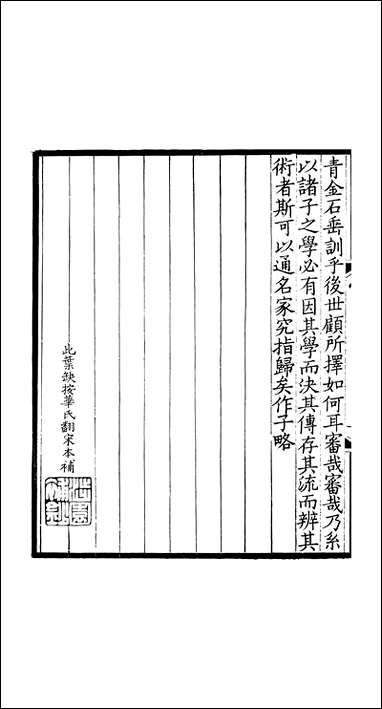 青金石垂訓乎後世顧所擇如何耳審哉審哉乃系
以諸子之學必有因其學而決其傳存其流而辨其
術者斯可以通名家究指歸矣作子略
此葉缺按華氏翻宋本補